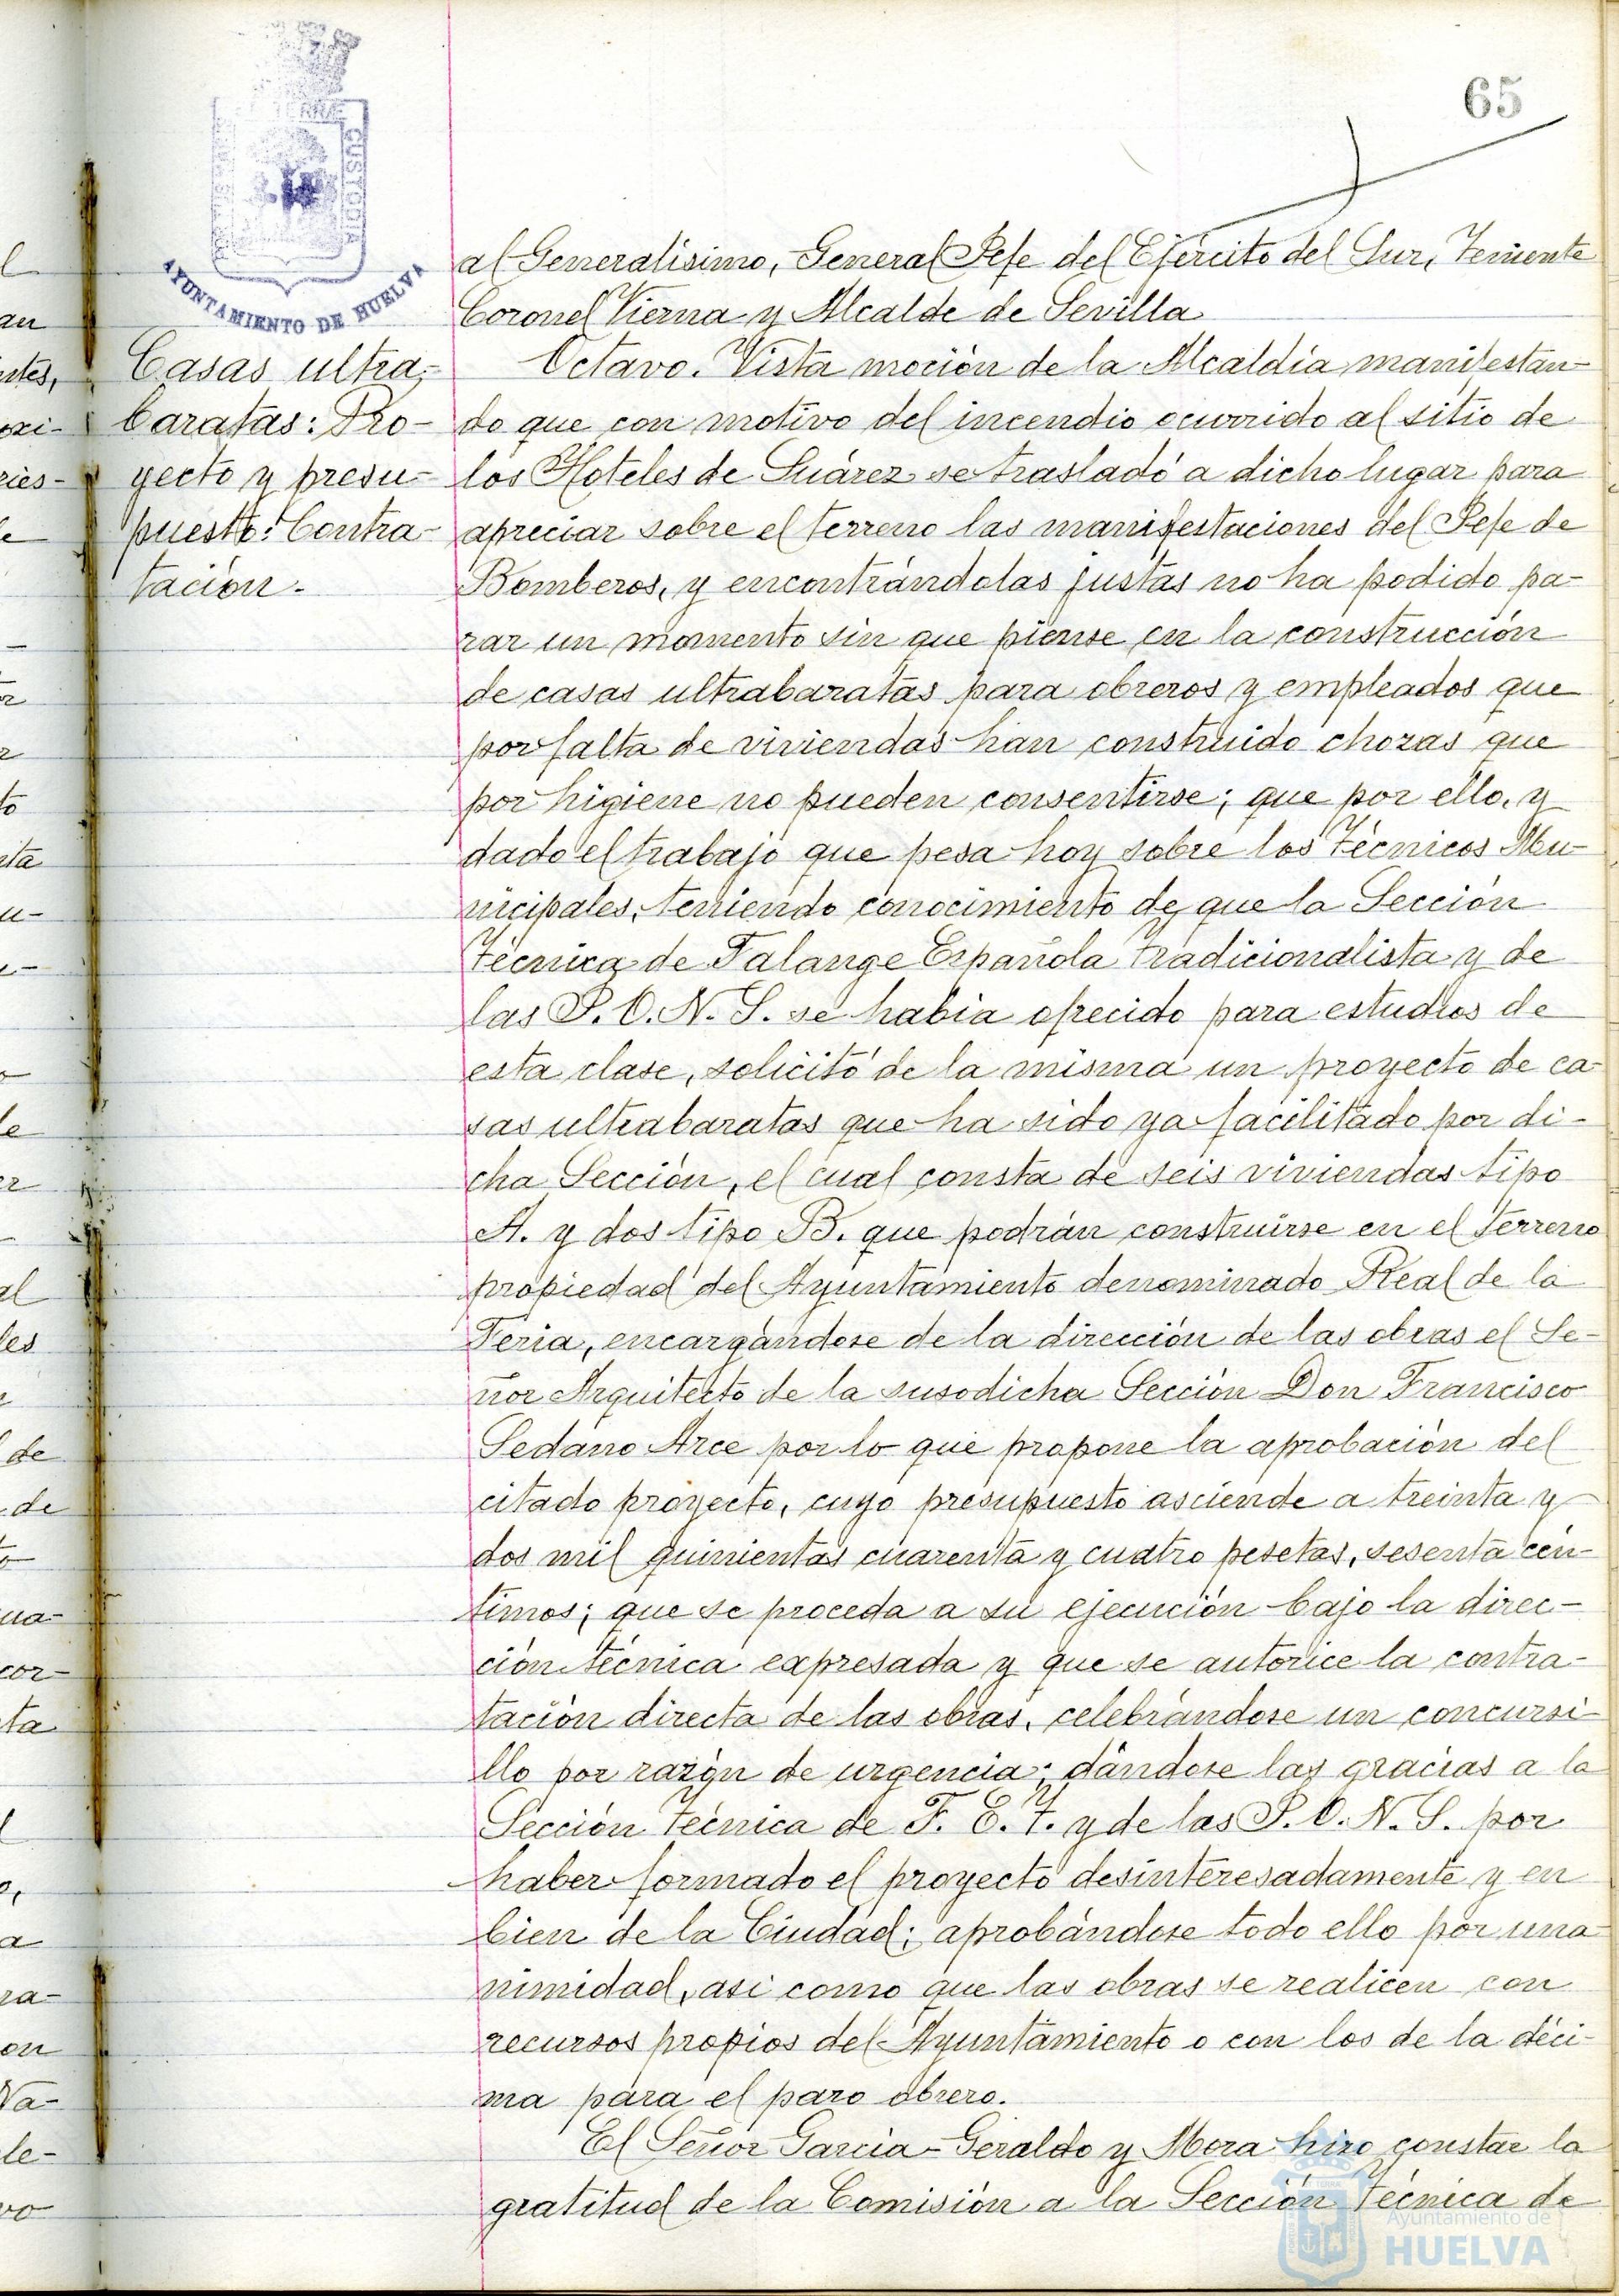 65
TERRÆ
CUSTODIA
AYUNTAMIENTO DE HUELVA
Casas ultra-
baratas: Pro-
yecto y presu-
puesto: Contra-
tación.-
al Generalísimo, General Jefe del Ejército del Sur, Teniente
Coronel Vierna y Alcalde de Sevilla
Octavo. Vista moción de la Alcaldía manifestan-
do que con motivo del incendio ocurrido al sitio de
los Hoteles de Suárez se trasladó a dicho lugar para
apreciar sobre el terreno las manifestaciones del Jefe de
Bomberos, y encontrándolas justas no ha podido pa-
rar un momento sin que piense en la construcción
de casas ultrabaratas para obreros y empleados que
por falta de viviendas han construido chozas que
por higiene no pueden consentirse; que por ello, y
dado el trabajo que pesa hoy sobre los Técnicos Mu-
nicipales, teniendo conocimiento de que la Sección
Técnica de Falange Española Tradicionalista y de
las J. O. N. S. se había ofrecido para estudios de
esta clase, solicitó de la misma un proyecto de ca-
sas ultrabaratas que ha sido ya facilitado por di-
cha Sección, el cual consta de seis viviendas tipo
A. y dos tipo B. que podrán construirse en el terreno
propiedad del Ayuntamiento denominado Real de la
Feria, encargándose de la dirección de las obras el Se-
ñor Arquitecto de la susodicha Sección Don Francisco
Sedano Arce por lo que propone la aprobación del
citado proyecto, cuyo presupuesto asciende a treinta y
dos mil quinientas cuarenta y cuatro pesetas, sesenta cén-
timos; que se proceda a su ejecución bajo la direc-
ción técnica expresada y que se autorice la contra-
tación directa de las obras, celebrándose un concursi-
llo por razón de urgencia; dándose las gracias a la
Sección Técnica de F. E. T. y de las J. O. N. S. por
haber formado el proyecto desinteresadamente y en
bien de la Ciudad; aprobándose todo ello por una
nimidad, asi como que las obras se realicen con
recursos propios del Ayuntamiento o con los de la déci-
ma para el paro obrero.
El Señor García-Geraldo y Mora hizo constar la
gratitud de la Comisión a la Sección Técnica de
Ayuntamiento de
HUELVA